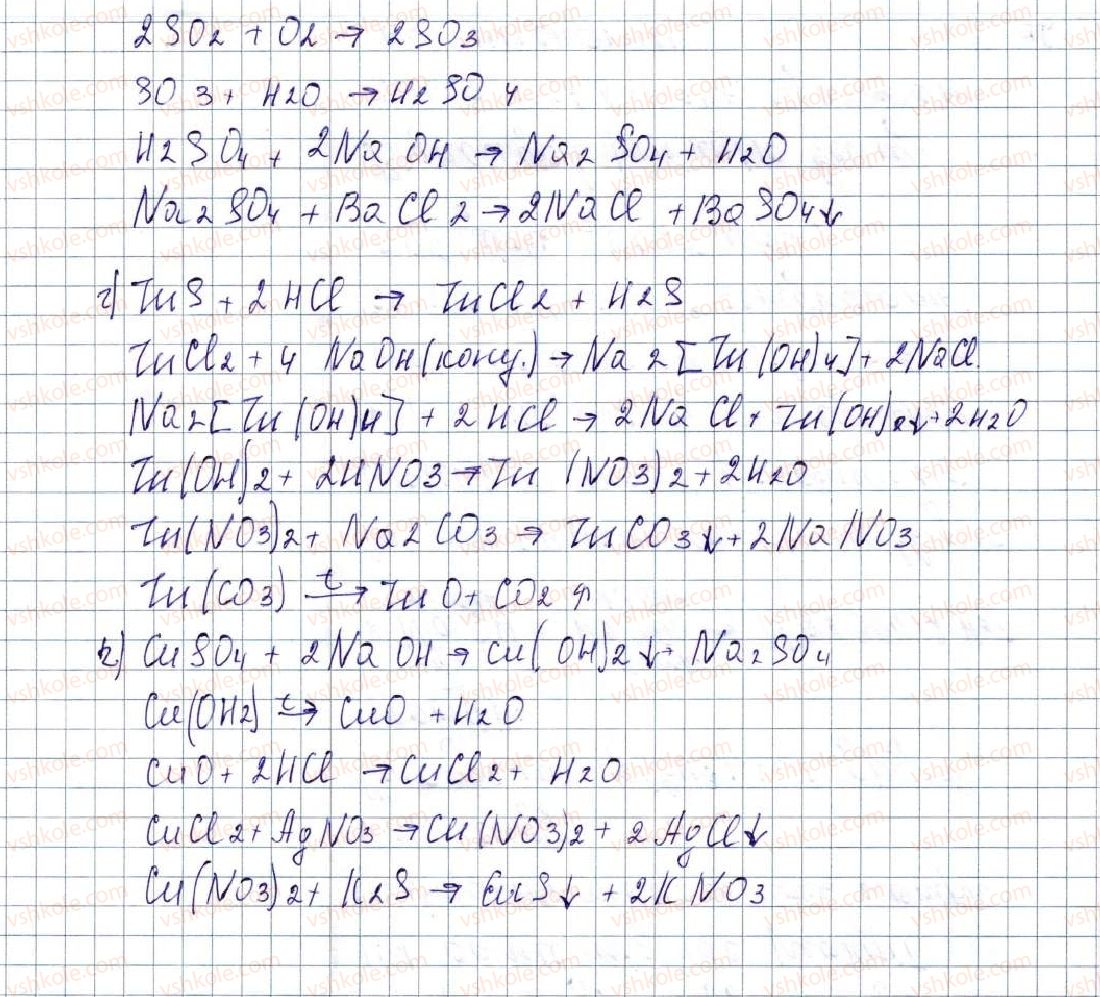 2SO2 + O2 → 2SO3
SO3 + H2O → H2SO4
H2SO4 + 2NaOH → Na2SO4 + H2O
Na2SO4 + BaCl2 → 2NaCl + BaSO4↓
г) ZnS + 2HCl → ZnCl2 + H2S
ZnCl2 + 4 NaOH (конц.) → Na2[Zn(OH)4] + 2NaCl.
Na2[Zn(OH)4] + 2HCl → 2NaCl + Zn(OH)2↓ + 2H2O
Zn(OH)2 + 2HNO3 → Zn(NO3)2 + 2H2O
Zn(NO3)2 + Na2CO3 → ZnCO3↓ + 2NaNO3
Zn(CO3) t→ ZnO + CO2↑
CuSO4 + 2NaOH → Cu(OH)2↓ + Na2SO4
Cu(OH2) t→ CuO + H2O
CuO + 2HCl → CuCl2 + H2O
CuCl2 + AgNO3 → Cu(NO3)2 + 2AgCl↓
Cu(NO3)2 + K2S → CuS↓ + 2KNO3
vshkole.com